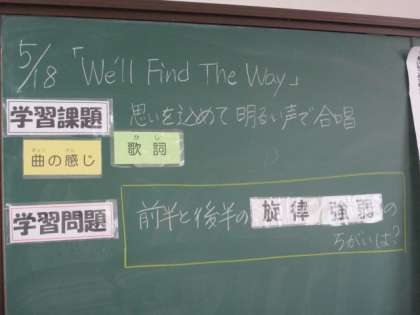 5/18 「We'll Find The Way」
学習課題 思いを込めて明るい声で合唱
曲の感じ 歌詞
学習問題 前半と後半の旋律 強弱の
ちがいは?